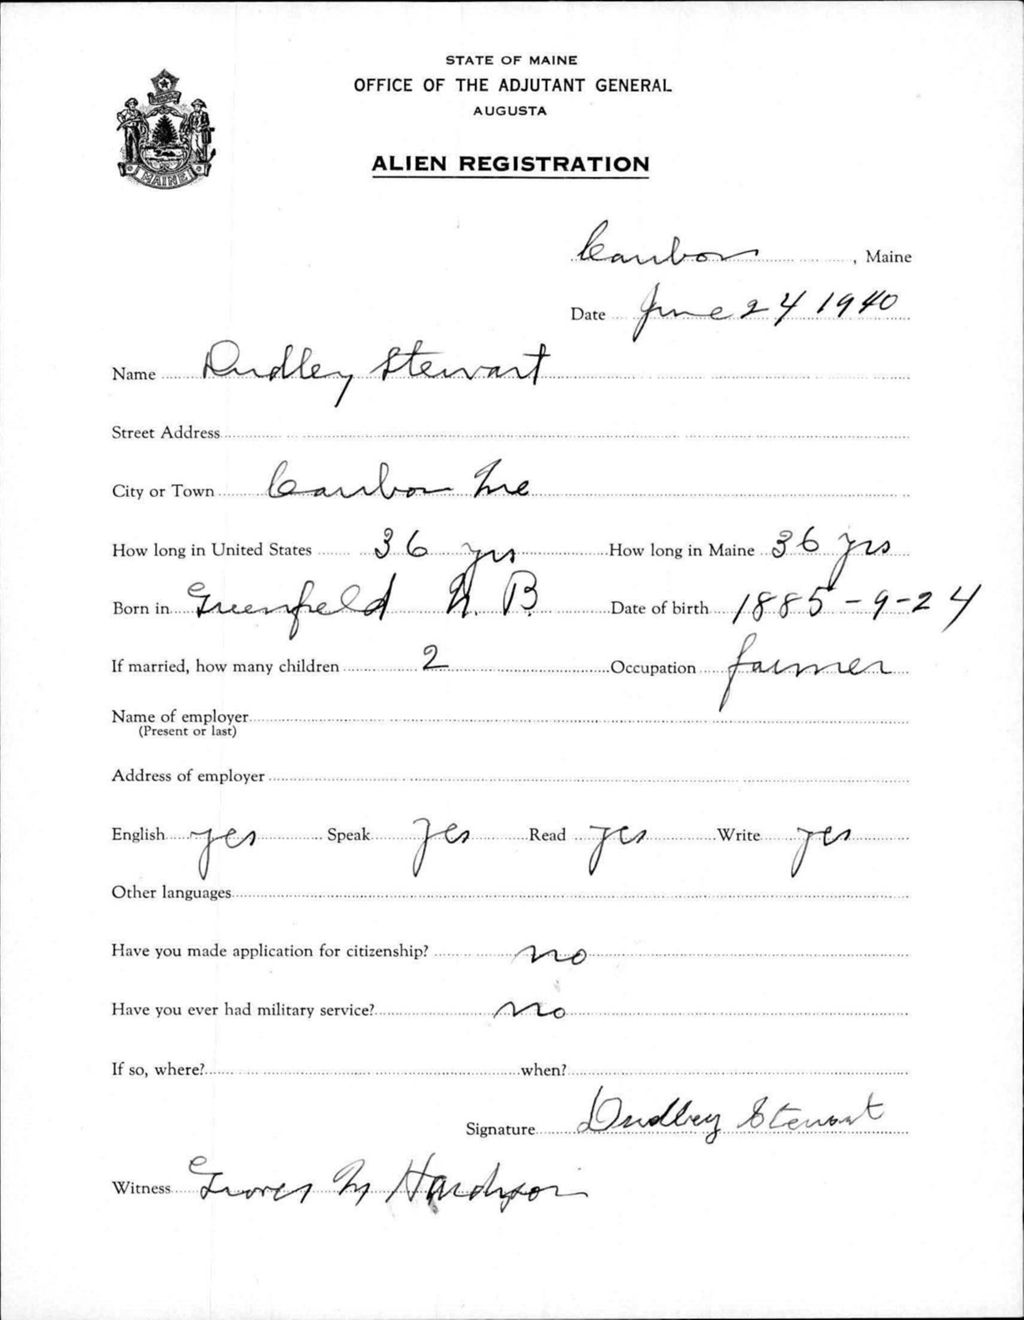 STATE OF MAINE
OFFICE OF THE ADJUTANT GENERAL
AUGUSTA
ALIEN REGISTRATION
MAINE
Caribou, Maine
Date June 24 1940
Name Dudley Stewart
Street Address
City or Town Caribou Me
How long in United States 36 yrs How long in Maine 36 yrs
Born in Greenfield N. B Date of birth 1885-9-24
If married, how many children 2 Occupation farmer
Name of employer
(Present or last)
Address of employer
English yes Speak yes Read yes Write yes
Other languages
Have you made application for citizenship? no
Have you ever had military service? no
If so, where? when?
Signature Dudley Stewart
Witness Grover M Hardison